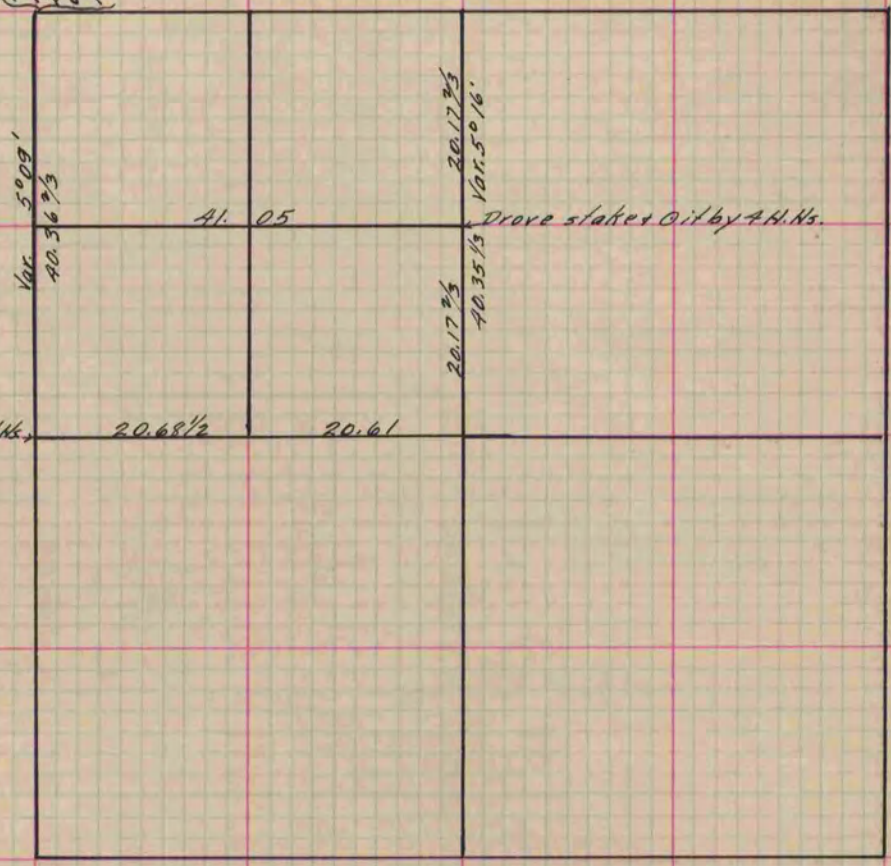 Var. 5°09'
40.36 2/3
41.05
20.17 2/3
Var. 5°16'
Drove stake & ⊙ it by 4 H.Hs.
20.17 2/3
40.35 1/3
Hs.
20.68 1/2 20.61